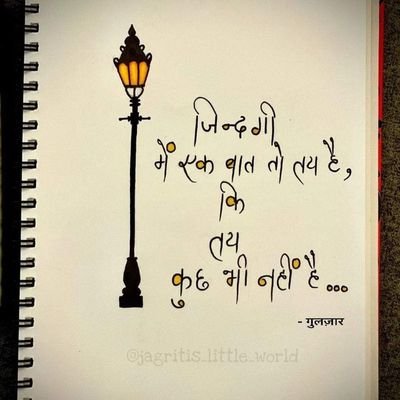 जिन्दगी
में एक बात तो तय है,
कि
तय
कुछ भी नहीं है...
- गुलज़ार
@jagritis_little_world